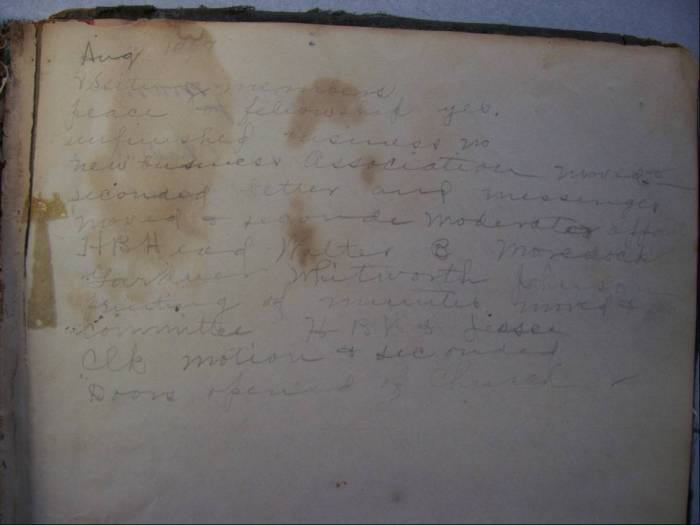 Aug
Visiting members
peace & fellowship yes.
unfinished business no
new business Association moved &
seconded letter and messenger
moved & seconde moderator
HBH and Walter B Murdock
Gardner Whitworth
printing of minutes moved &
committee HBH & Jesse
Clk motion & seconded
Doors opened of Church